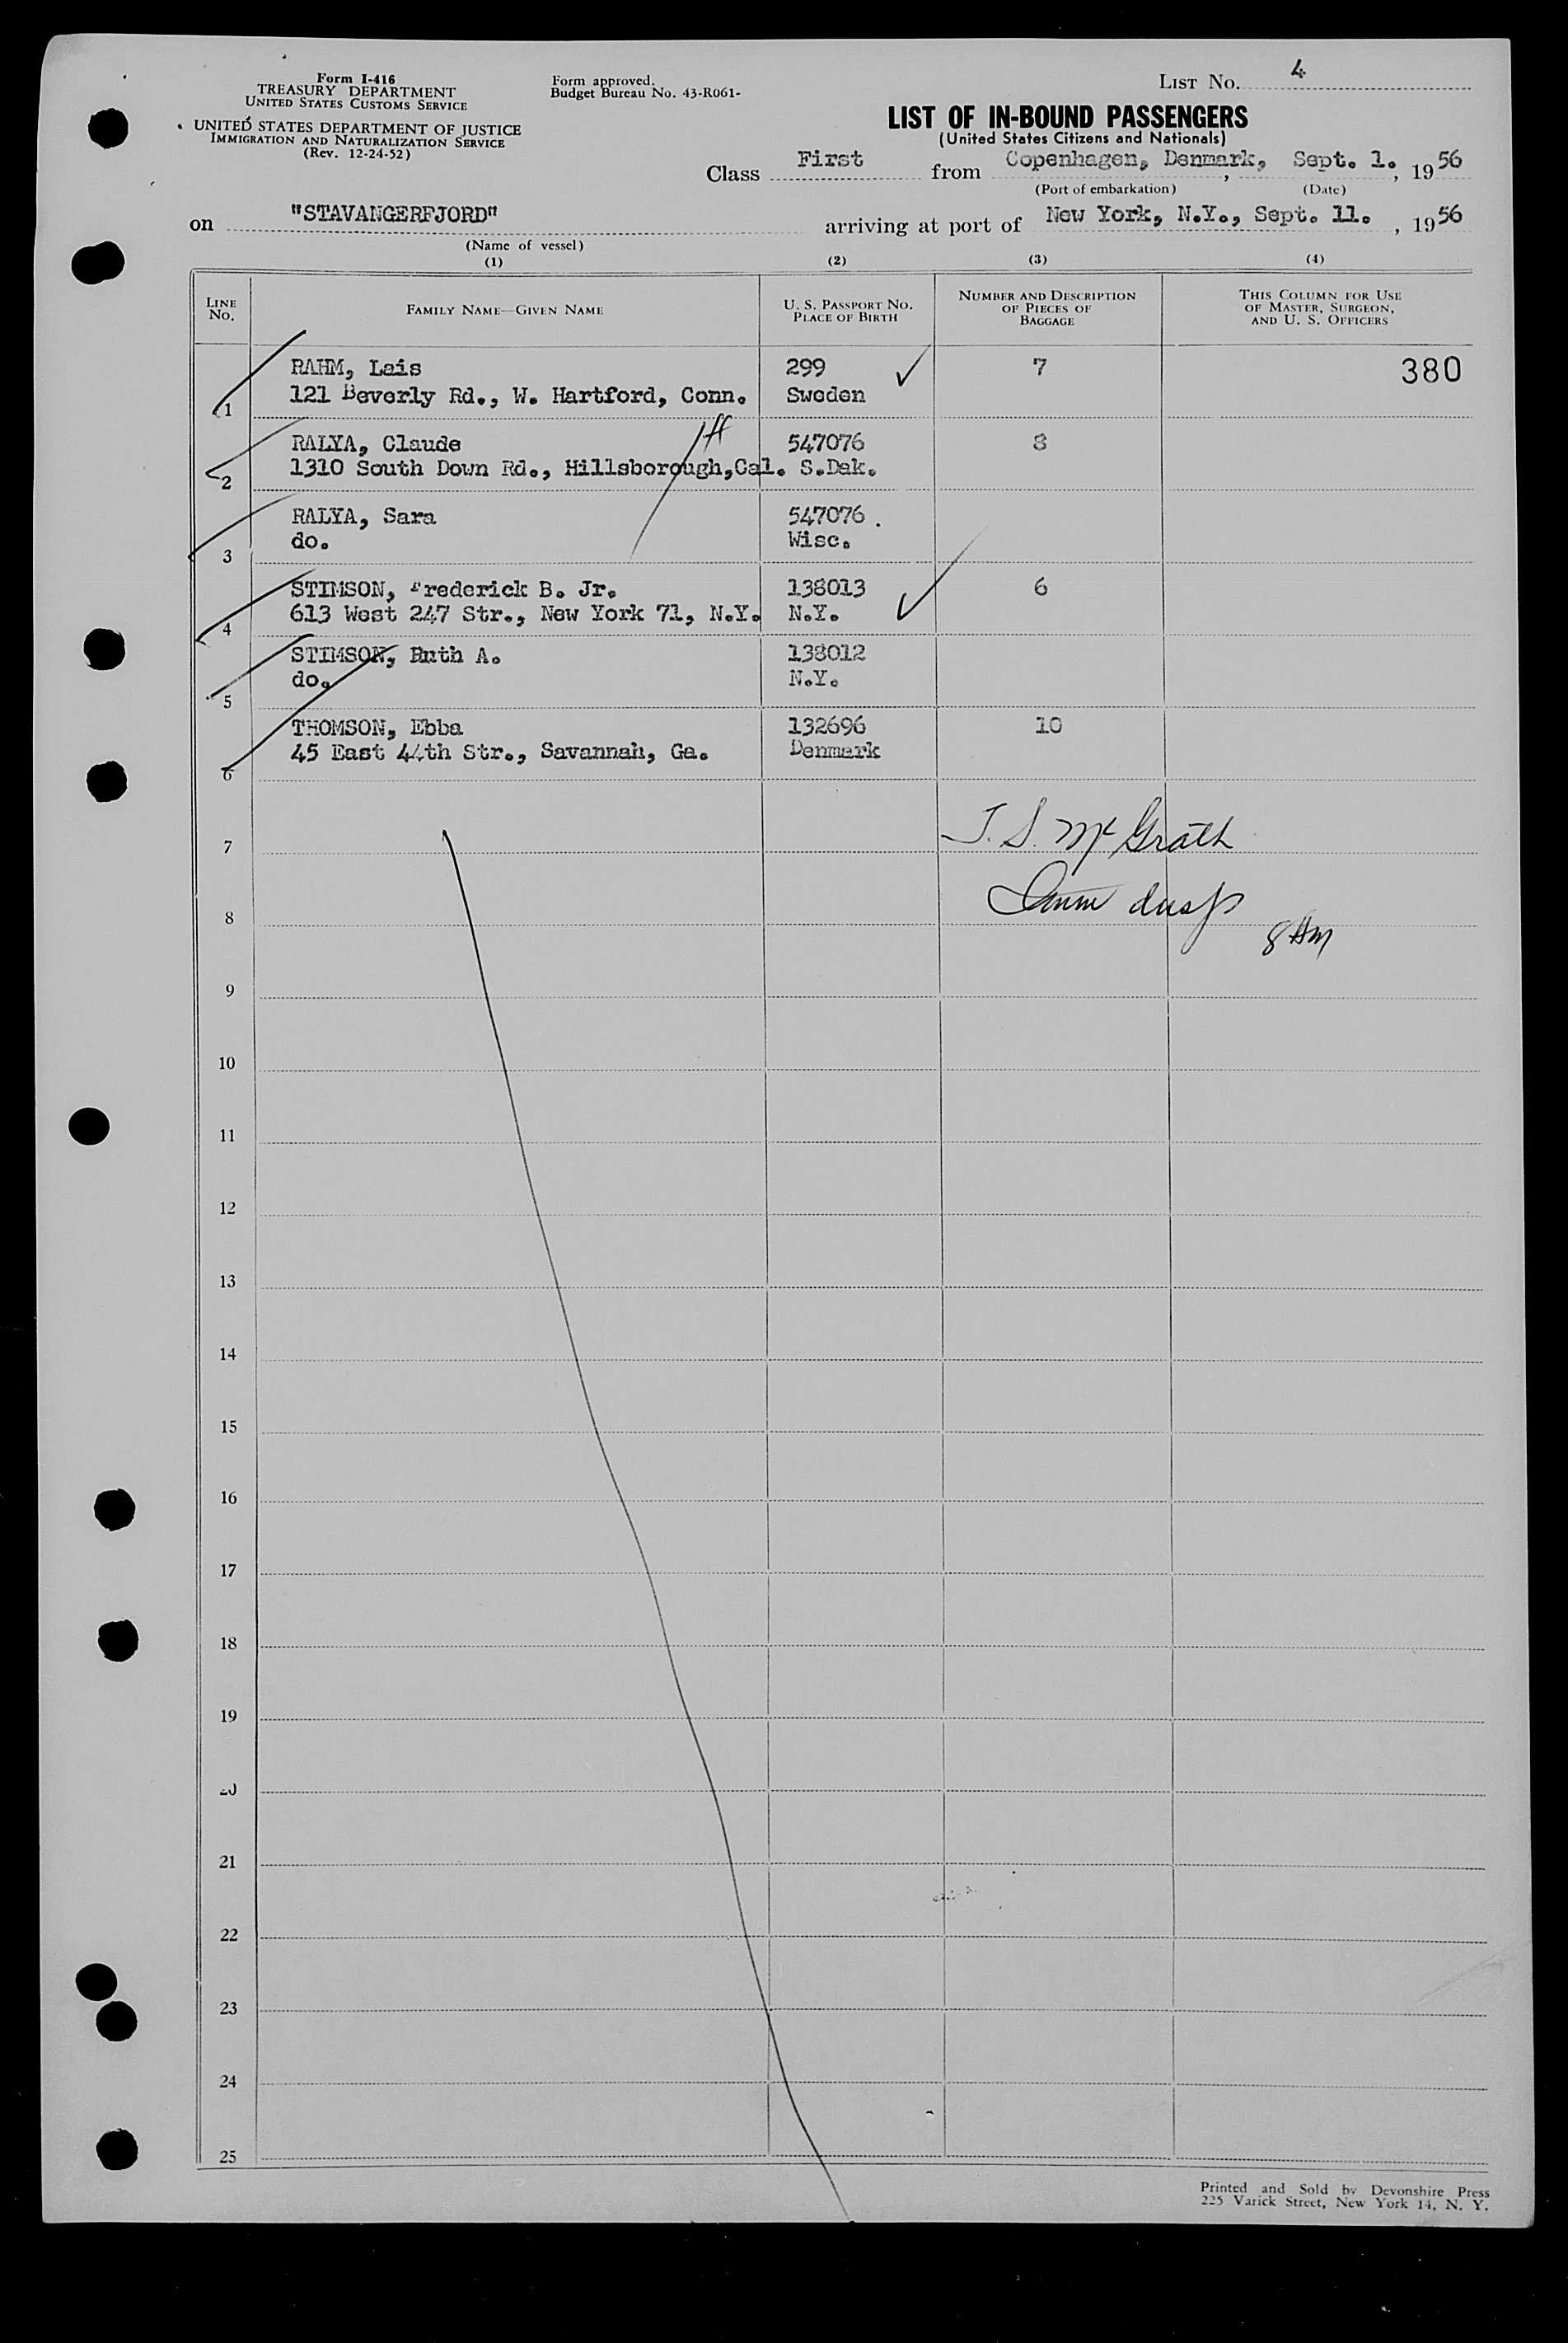 Form I-416
TREASURY DEPARTMENT
UNITED STATES CUSTOMS SERVICE
UNITED STATES DEPARTMENT OF JUSTICE
IMMIGRATION AND NATURALIZATION SERVICE
(Rev. 12-24-52)
Form approved.
Budget Bureau No. 43-R061-
LIST NO. 4
LIST OF IN-BOUND PASSENGERS
(United States Citizens and Nationals)
Class First from Copenhagen, Denmark, Sept. 1., 1956
(Port of embarkation) (Date)
on "STAVANGERFJORD" arriving at port of New York, N.Y., Sept. 11., 1956
(Name of vessel)
(1) (2) (3) (4)
LINE NO. FAMILY NAME—GIVEN NAME U. S. PASSPORT NO. PLACE OF BIRTH NUMBER AND DESCRIPTION OF PIECES OF BAGGAGE THIS COLUMN FOR USE OF MASTER, SURGEON, AND U. S. OFFICERS
RAHM, Lais 299 7 380
1 121 Beverly Rd., W. Hartford, Conn. Sweden
RALYA, Claude 547076 8
2 1310 South Down Rd., Hillsborough, Cal. S.Dak.
RALYA, Sara 547076
3 do. Wisc.
STIMSON, Frederick B. Jr. 138013 6
4 613 West 247 Str., New York 71, N.Y. N.Y.
STIMSON, Ruth A. 138012
5 do. N.Y.
THOMSON, Ebba 132696 10
6 45 East 44th Str., Savannah, Ga. Denmark
7 J. S. McGrath
8 Imm insp
8 AM
9
10
11
12
13
14
15
16
17
18
19
20
21
22
23
24
25
Printed and Sold by Devonshire Press
225 Varick Street, New York 14, N. Y.